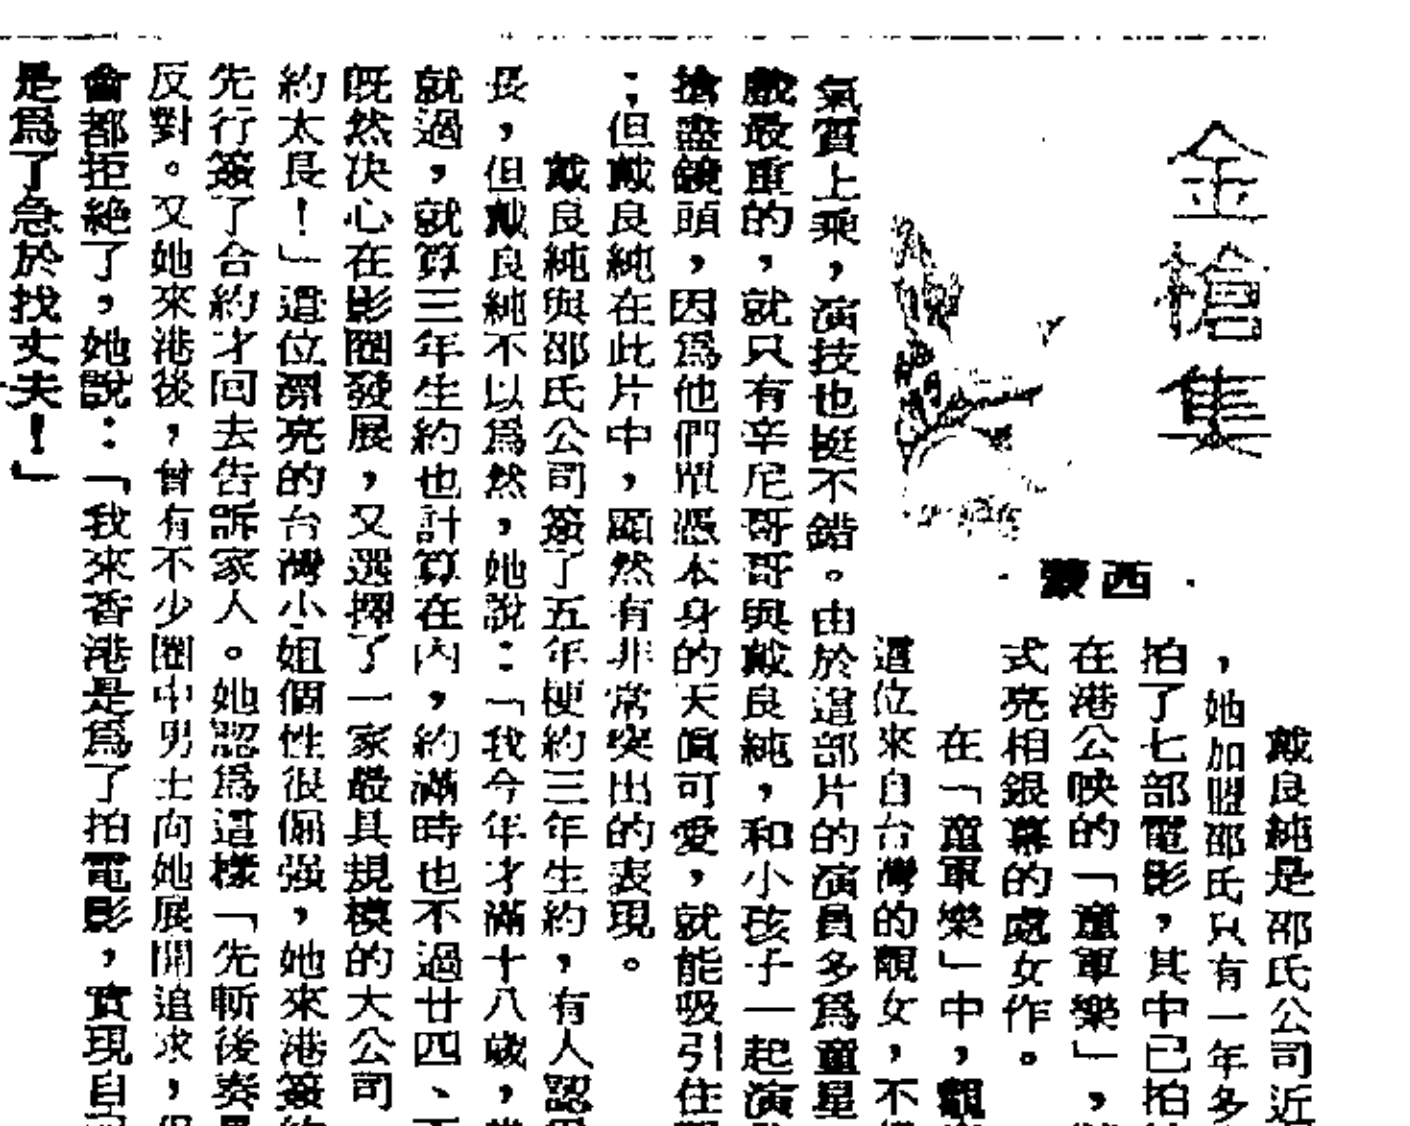 金槍集
西蒙
戴良純是邵氏公司近
，她加盟邵氏只有一年多
拍了七部電影，其中已拍
在港公映的「童軍樂」，
式亮相銀幕的處女作。
在「童軍樂」中，觀
這位來自台灣的靚女，不
氣質上乘，演技也挺不錯。由於這部片的演員多爲童星
戲最重的，就只有辛尼哥哥與戴良純，和小孩子一起演
搶盡鏡頭，因爲他們單憑本身的天眞可愛，就能吸引住
；但戴良純在此片中，顯然有非常突出的表現。
戴良純與邵氏公司簽了五年硬約三年生約，有人認
長，但戴良純不以爲然，她說：「我今年才滿十八歲，
就過，就算三年生約也計算在內，約滿時也不過廿四、
既然决心在影圈發展，又選擇了一家最具規模的大公司
約太長！」這位漂亮的台灣小姐個性很倔强，她來港簽
先行簽了合約才回去告訴家人。她認爲這樣「先斬後奏
反對。又她來港後，曾有不少圈中男士向她展開追求，
會都拒絕了，她說：「我來香港是爲了拍電影，實現自
是爲了急於找丈夫！」